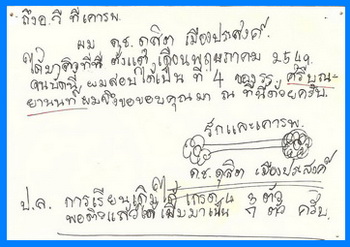 ถึงอ.วี ที่เคารพ.
ผม ด.ช. ดุสิต เมืองประสงค์.
ได้มาติวที่นี่ ตั้งแต่ เดือนพฤษภาคม 2549
จนบัดนี้ ผมสอบได้เป็นที่ 4 ของรร. ศรีบุณ-
ยานนท์ ผมจึงขอขอบคุณมา ณ ที่นี้ด้วยครับ.
รักและเคารพ.
ด.ช. ดุสิต เมืองประสงค์
ป.ล. การเรียนเดิมได้ เกรด 4 3 ตัว
พอติวแล้วได้ เพิ่มมาเป็น 7 ตัว ครับ.